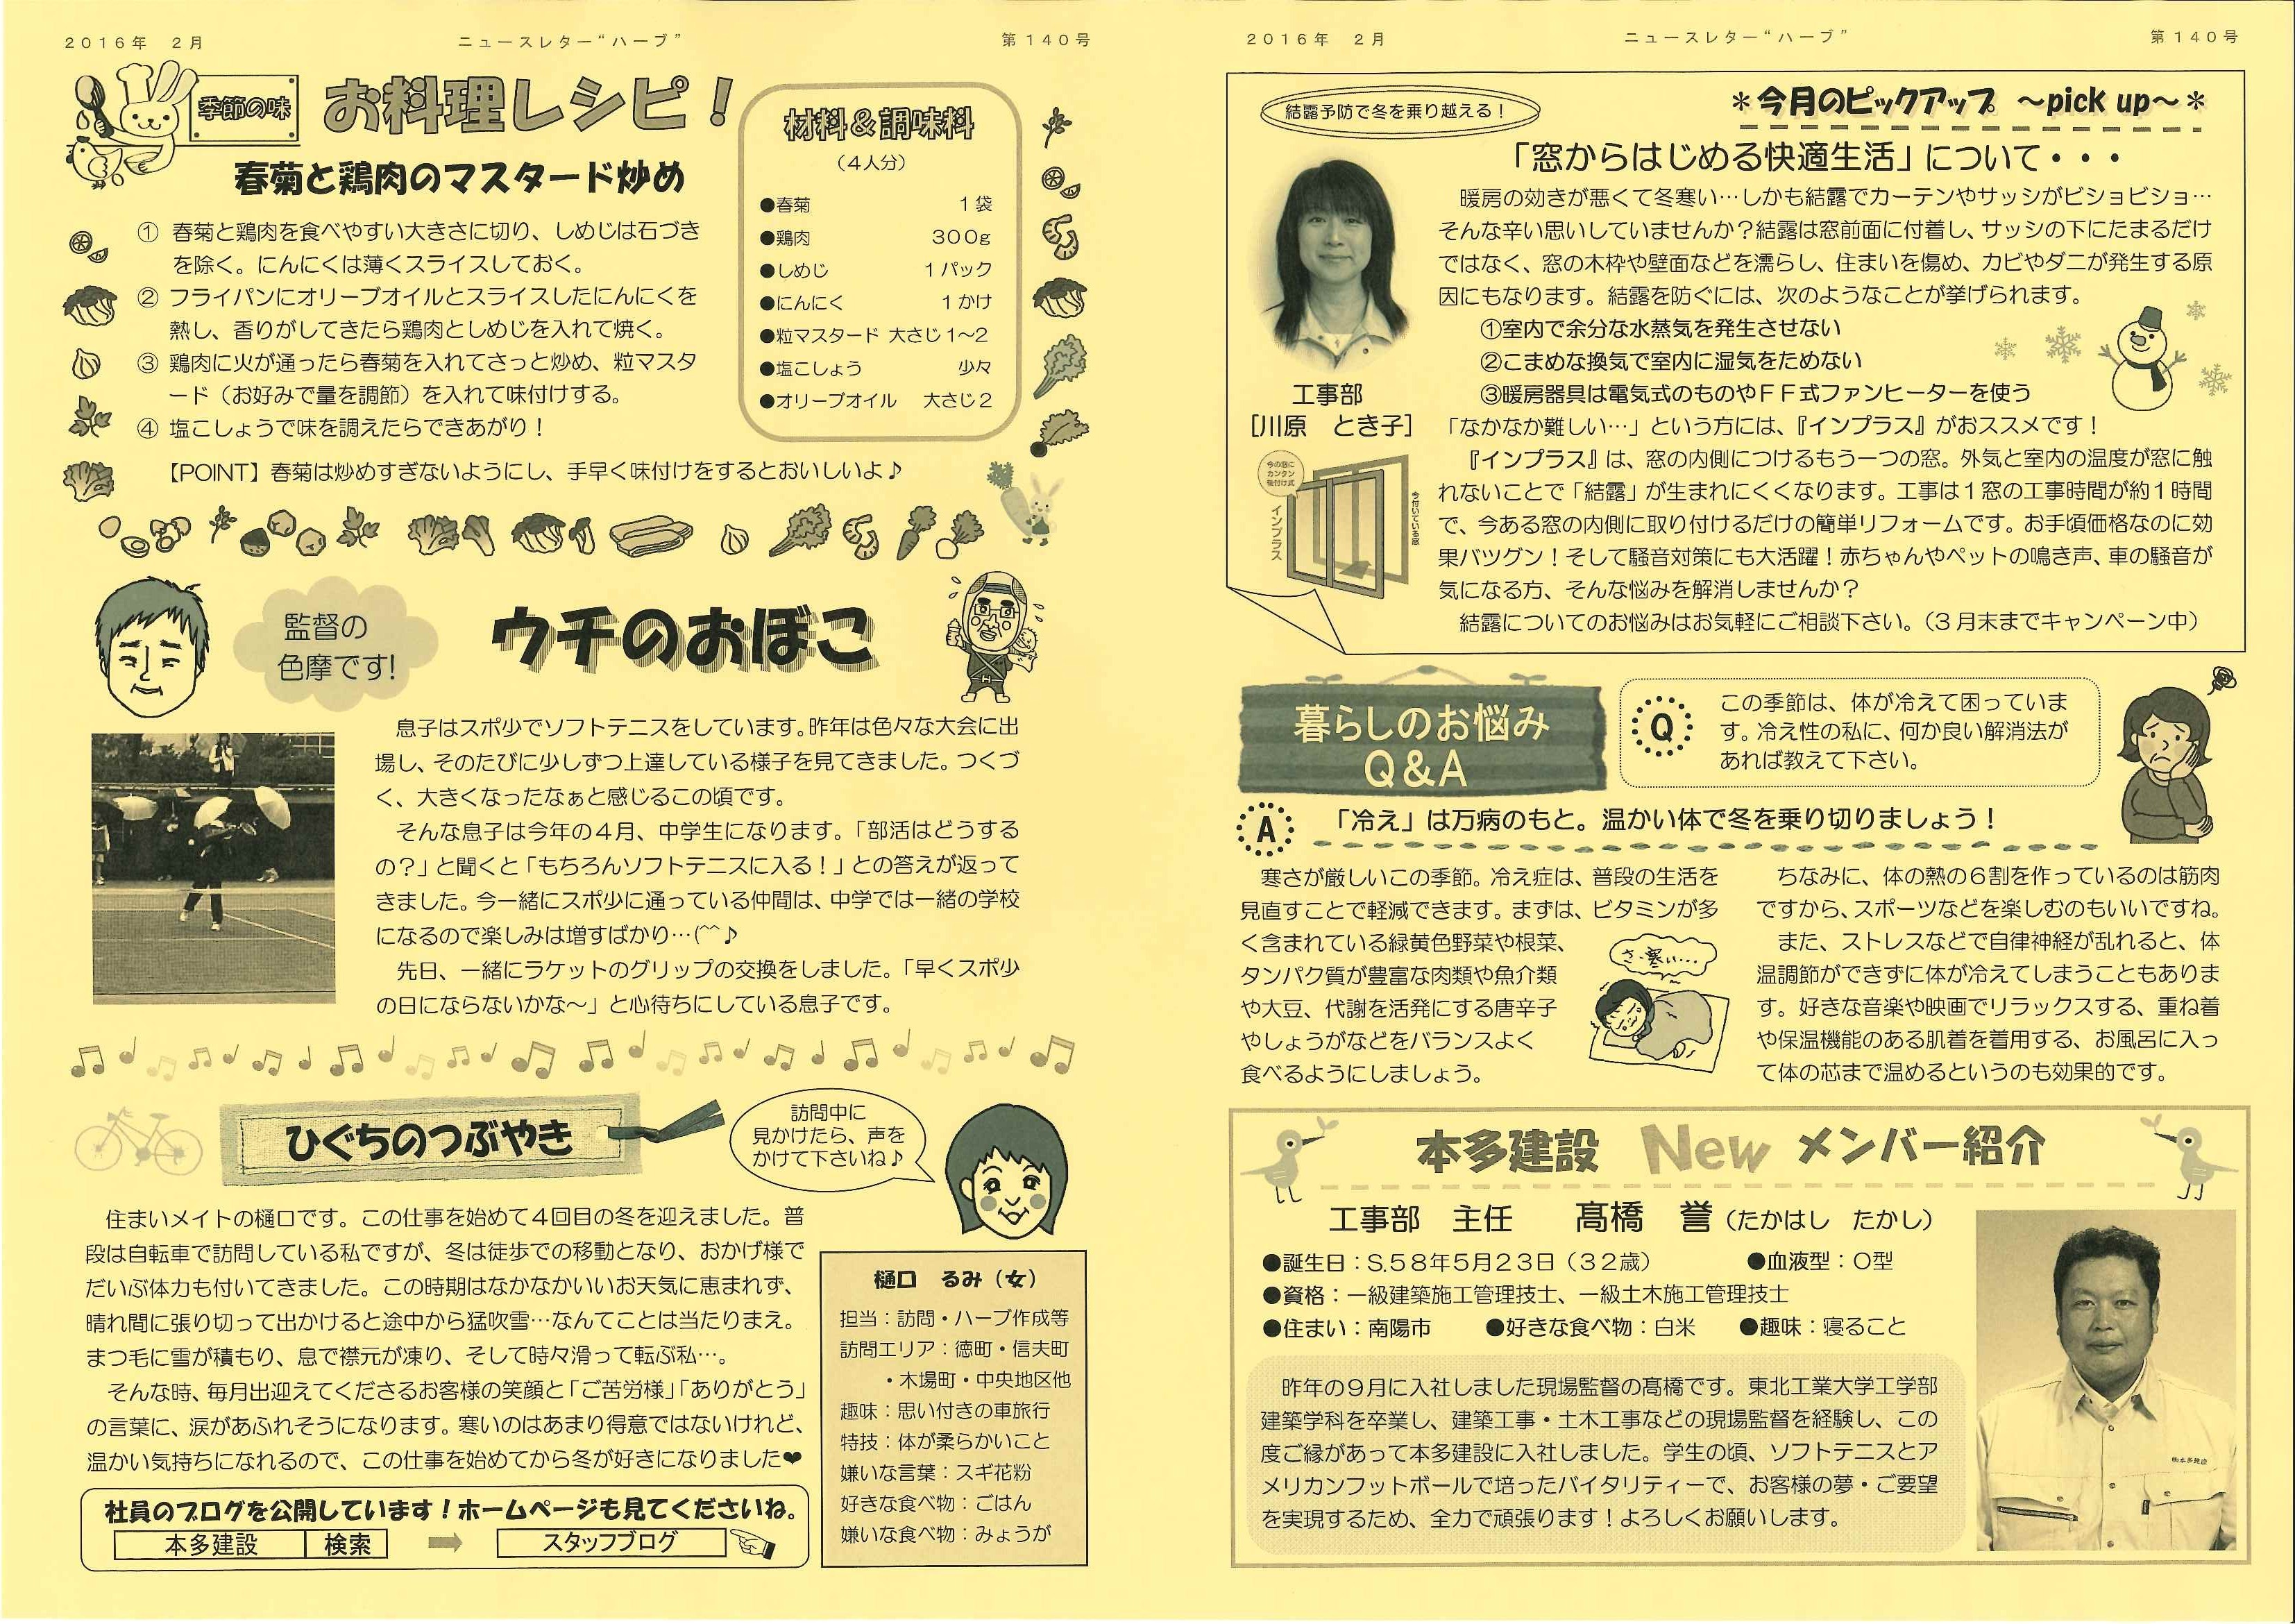 2016年 2月
ニュースレター“ハーブ”
第140号
季節の味
お料理レシピ！
春菊と鶏肉のマスタード炒め
① 春菊と鶏肉を食べやすい大きさに切り、しめじは石づき
を除く。にんにくは薄くスライスしておく。
② フライパンにオリーブオイルとスライスしたにんにくを
熱し、香りがしてきたら鶏肉としめじを入れて焼く。
③ 鶏肉に火が通ったら春菊を入れてさっと炒め、粒マスタ
ード（お好みで量を調節）を入れて味付けする。
④ 塩こしょうで味を調えたらできあがり！
【POINT】春菊は炒めすぎないようにし、手早く味付けをするとおいしいよ♪
材料＆調味料
（４人分）
●春菊 １袋
●鶏肉 ３００g
●しめじ １パック
●にんにく １かけ
●粒マスタード 大さじ１～２
●塩こしょう 少々
●オリーブオイル 大さじ２
監督の
色摩です!
ウチのおぼこ
息子はスポ少でソフトテニスをしています。昨年は色々な大会に出
場し、そのたびに少しずつ上達している様子を見てきました。つくづ
く、大きくなったなぁと感じるこの頃です。
そんな息子は今年の４月、中学生になります。「部活はどうする
の？」と聞くと「もちろんソフトテニスに入る！」との答えが返って
きました。今一緒にスポ少に通っている仲間は、中学では一緒の学校
になるので楽しみは増すばかり…(^^♪
先日、一緒にラケットのグリップの交換をしました。「早くスポ少
の日にならないかな～」と心待ちにしている息子です。
ひぐちのつぶやき
訪問中に
見かけたら、声を
かけて下さいね♪
住まいメイトの樋口です。この仕事を始めて４回目の冬を迎えました。普
段は自転車で訪問している私ですが、冬は徒歩での移動となり、おかげ様で
だいぶ体力も付いてきました。この時期はなかなかいいお天気に恵まれず、
晴れ間に張り切って出かけると途中から猛吹雪…なんてことは当たりまえ。
まつ毛に雪が積もり、息で襟元が凍り、そして時々滑って転ぶ私…。
そんな時、毎月出迎えてくださるお客様の笑顔と「ご苦労様」「ありがとう」
の言葉に、涙があふれそうになります。寒いのはあまり得意ではないけれど、
温かい気持ちになれるので、この仕事を始めてから冬が好きになりました❤
樋口 るみ（女）
担当：訪問・ハーブ作成等
訪問エリア：徳町・信夫町
・木場町・中央地区他
趣味：思い付きの車旅行
特技：体が柔らかいこと
嫌いな言葉：スギ花粉
好きな食べ物：ごはん
嫌いな食べ物：みょうが
社員のブログを公開しています！ホームページも見てくださいね。
本多建設 検索 スタッフブログ
2016年 2月
ニュースレター“ハーブ”
第140号
結露予防で冬を乗り越える！
＊今月のピックアップ ～pick up～＊
「窓からはじめる快適生活」について・・・
暖房の効きが悪くて冬寒い…しかも結露でカーテンやサッシがビショビショ…
そんな辛い思いしていませんか？結露は窓前面に付着し、サッシの下にたまるだけ
ではなく、窓の木枠や壁面などを濡らし、住まいを傷め、カビやダニが発生する原
因にもなります。結露を防ぐには、次のようなことが挙げられます。
①室内で余分な水蒸気を発生させない
②こまめな換気で室内に湿気をためない
③暖房器具は電気式のものやＦＦ式ファンヒーターを使う
「なかなか難しい…」という方には、『インプラス』がおススメです！
『インプラス』は、窓の内側につけるもう一つの窓。外気と室内の温度が窓に触
れないことで「結露」が生まれにくくなります。工事は１窓の工事時間が約１時間
で、今ある窓の内側に取り付けるだけの簡単リフォームです。お手頃価格なのに効
果バツグン！そして騒音対策にも大活躍！赤ちゃんやペットの鳴き声、車の騒音が
気になる方、そんな悩みを解消しませんか？
結露についてのお悩みはお気軽にご相談下さい。（３月末までキャンペーン中）
工事部
[川原 とき子]
今の窓に
カンタン
後付け式
インプラス
今付いている窓
暮らしのお悩み
Q＆A
Q
この季節は、体が冷えて困っていま
す。冷え性の私に、何か良い解消法が
あれば教えて下さい。
A
「冷え」は万病のもと。温かい体で冬を乗り切りましょう！
寒さが厳しいこの季節。冷え症は、普段の生活を
見直すことで軽減できます。まずは、ビタミンが多
く含まれている緑黄色野菜や根菜、
タンパク質が豊富な肉類や魚介類
や大豆、代謝を活発にする唐辛子
やしょうがなどをバランスよく
食べるようにしましょう。
さ・寒い…
ちなみに、体の熱の６割を作っているのは筋肉
ですから、スポーツなどを楽しむのもいいですね。
また、ストレスなどで自律神経が乱れると、体
温調節ができずに体が冷えてしまうこともありま
す。好きな音楽や映画でリラックスする、重ね着
や保温機能のある肌着を着用する、お風呂に入っ
て体の芯まで温めるというのも効果的です。
本多建設 New メンバー紹介
工事部 主任 髙橋 誉（たかはし たかし）
●誕生日：S.５８年５月２３日（３２歳） ●血液型：O型
●資格：一級建築施工管理技士、一級土木施工管理技士
●住まい：南陽市 ●好きな食べ物：白米 ●趣味：寝ること
昨年の９月に入社しました現場監督の髙橋です。東北工業大学工学部
建築学科を卒業し、建築工事・土木工事などの現場監督を経験し、この
度ご縁があって本多建設に入社しました。学生の頃、ソフトテニスとア
メリカンフットボールで培ったバイタリティーで、お客様の夢・ご要望
を実現するため、全力で頑張ります！よろしくお願いします。
㈱本多建設